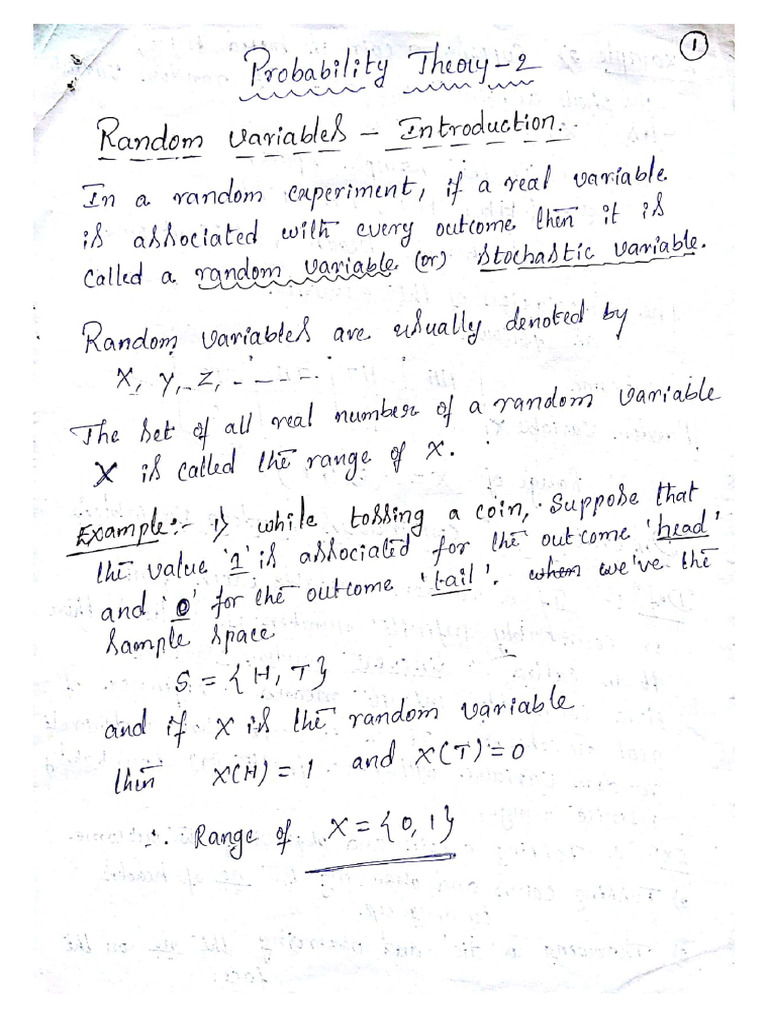 1
Probability Theory-2
Random Variables - Introduction:
In a random experiment, if a real variable
is associated with every outcome then it is
called a random variable (or) stochastic variable.
Random variables are usually denoted by
X, Y, Z, ------
The set of all real number of a random variable
X is called the range of X.
Example:- 1) while tossing a coin, suppose that
the value '1' is associated for the outcome 'head'
and '0' for the outcome 'tail'. when we've the
sample space
S = {H, T}
and if X is the random variable
then X(H) = 1 and X(T) = 0
∴ Range of X = {0, 1}